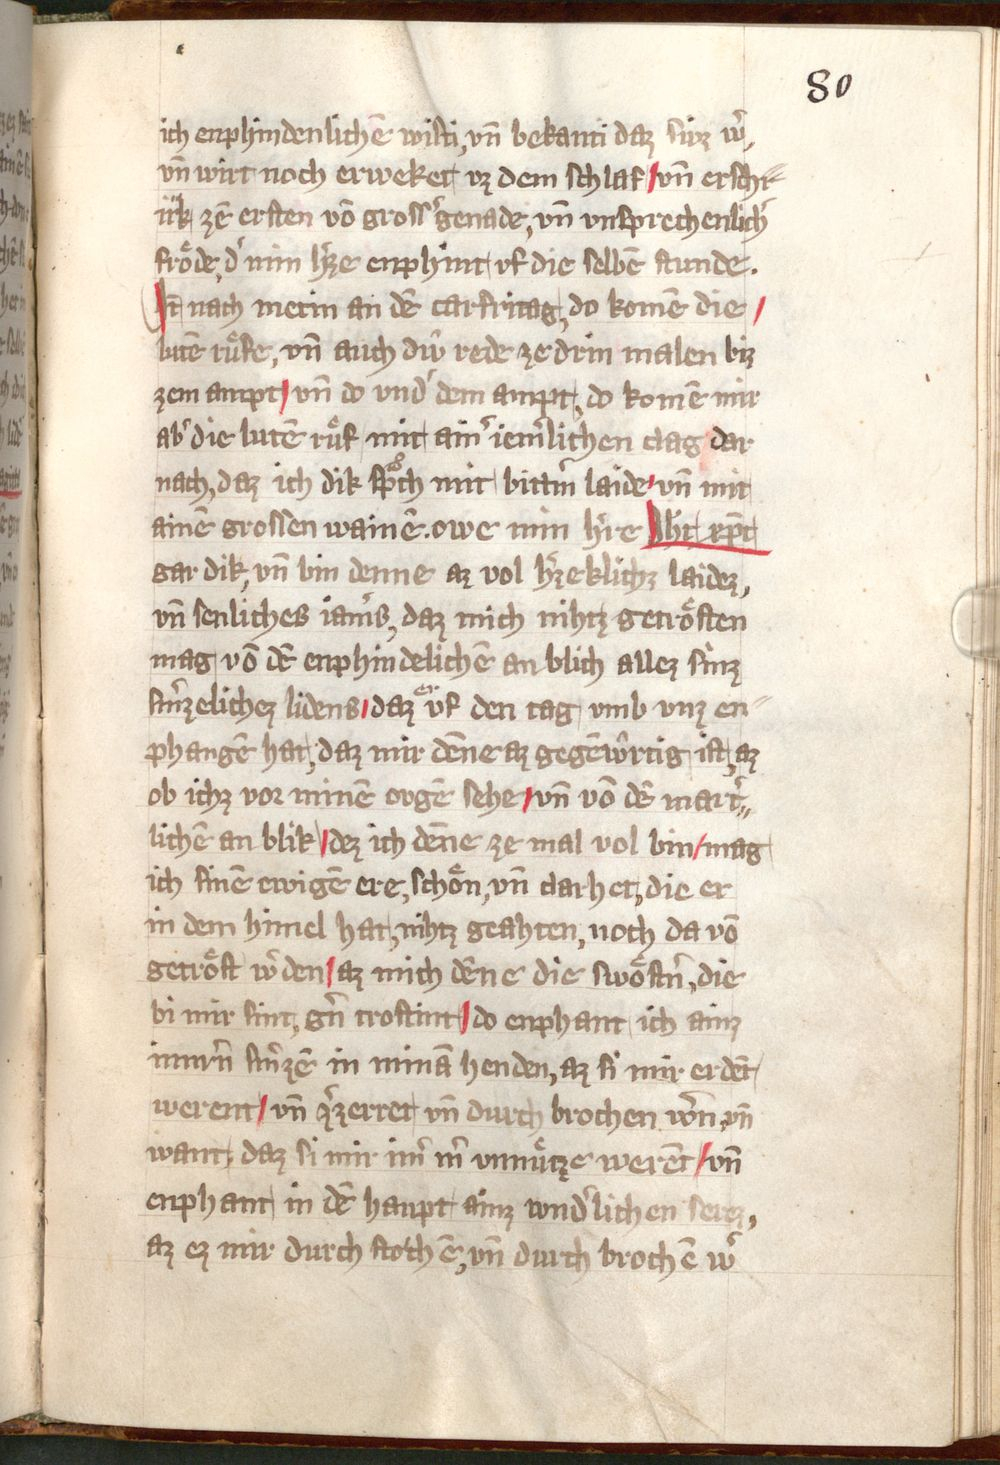 80
ich enphindenlichē wisti, vn̄ bekanti daz sivz w̑,
vn̄ wirt noch erweket vz dem schlaf / vn̄ erschr-
ik zē ersten vō gross̑ genade, vn̄ vnsprechenlich̑
frőde, d̑ min h̑ze enphint vf die selbē stunde.
It̄ nach metin an dē carfritag, do komē die /
lutē rűfe, vn̄ auch diw̑ rede ze drin malen biz
zem ampt / vn̄ do vnd̑ dem ampt, do komē mir
ab̑ die lutē rűf mit ain̑ iem̑lichen clag dar
nach, daz ich dik spͦch mit bitt̑m laide / vn̄ mit
ainē grossen wainē. owe min h̑re Jh̄c xp̄c
gar dik, vn̄ bin denne az vol h̑zeklichz laidez,
vn̄ senliches iam̑s, daz mich nihtz getrősten
mag vō dē enphindelichē an blich allez sinz
sm̑zelichez lidens / daz er vf den tag vmb vnz en-
phangē hat, daz mir dēne az gegēw̑rtig ist, az
ob ichz vor minē ovgē sehe / vn̄ vō dē mart̑-
lichē an blik / dez ich dēne ze mal vol bin / mag
ich sinē ewigē ere, schőn, vn̄ clarhet, die er
in dem himel hat, nihtz geahten, noch da vō
getrőst w̑den / az mich dēne die swőst̑n, die
bi mir sint, g̑n trostint / do enphant ich ainz
inn̑rn sm̑zē in minā henden, az si mir erdēt
werent / vn̄ v̑zerret vn̄ durch brochen w̑n, vn̄
want, daz si mir im̑ m̑ vnnűtze werēt / vn̄
enphant in dē haupt ainz wnd̑lichen serez,
az ez mir durch stochē, vn̄ durch brochē w̑